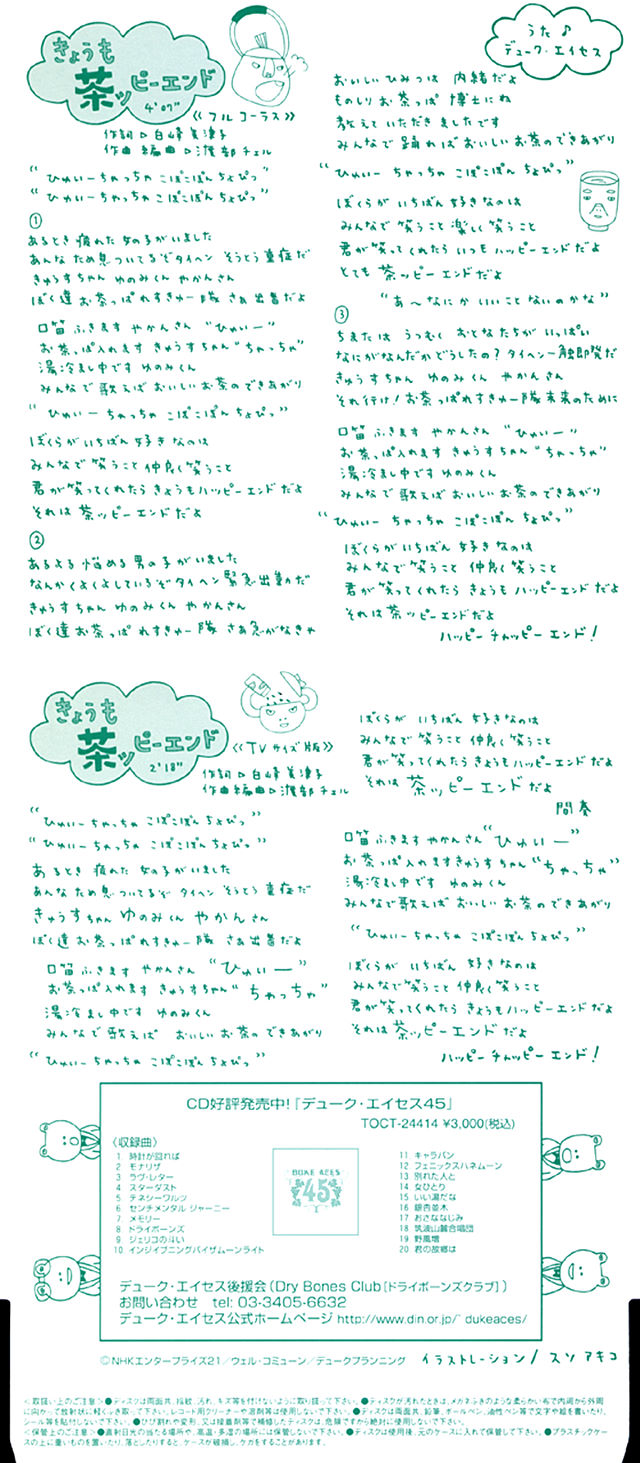 きょうも
茶ッピーエンド
4'07"
《フルコーラス》
作詞▷白峰美津子
作曲編曲▷渡部チェル
"ひゅぃーちゃっちゃ こぽこぽん ちょぴっ"
"ひゅぃーちゃっちゃ こぽこぽん ちょぴっ"
①
あるとき 疲れた 女の子がいました
あんな ため息ついてるぞタイヘン そうとう重症だ
きゅうすちゃん ゆのみくん やかんさん
ぼく達 お茶っぱれすきゅー隊 さぁ出番だよ
口笛ふきます やかんさん "ひゅぃー"
お茶っぱ入れます きゅうすちゃん "ちゃっちゃ"
湯冷まし中です ゆのみくん
みんなで歌えば おいしいお茶のできあがり
"ひゅぃー ちゃっちゃ こぽこぽん ちょぴっ"
ぼくらがいちばん好きなのは
みんなで笑うこと 仲良く笑うこと
君が笑ってくれたら きょうもハッピーエンドだよ
それは 茶ッピーエンドだよ
②
あるよる 悩める 男の子がいました
なんかくよくよしているぞタイヘン 緊急出動だ
きゅうすちゃん ゆのみくん やかんさん
ぼく達お茶っぱ れすきゅー隊 さぁ急がなきゃ
うた♪
デューク・エイセス
おいしいひみつは 内緒だよ
ものしりお茶っぱ 博士にね
教えて いただきましたです
みんなで踊れば おいしい お茶のできあがり
"ひゅぃー ちゃっちゃ こぽこぽん ちょぴっ"
ぼくらがいちばん 好きなのは
みんなで笑うこと 楽しく笑うこと
君が笑ってくれたら いつもハッピーエンドだよ
とても 茶ッピーエンドだよ
"あ～なにか いいこと ないのかな"
③
ちまたは うつむく おとなたちが いっぱい
なにがなんだかどうしたの？タイヘン一触即発だ
きゅうすちゃん ゆのみくん やかんさん
それ行け！お茶っぱれすきゅー隊 未来のために
口笛ふきます やかんさん "ひゅぃー"
お茶っぱ入れます きゅうすちゃん "ちゃっちゃ"
湯冷まし中です ゆのみくん
みんなで歌えば おいしい お茶のできあがり
"ひゅぃー ちゃっちゃ こぽこぽん ちょぴっ"
ぼくらがいちばん 好きなのは
みんなで笑うこと 仲良く笑うこと
君が笑ってくれたら きょうも ハッピーエンドだよ
それは茶ッピーエンドだよ
ハッピーチャッピーエンド！
きょうも
茶ッピーエンド
2'18"
《TVサイズ版》
作詞▷白峰美津子
作曲編曲▷渡部チェル
"ひゅぃーちゃっちゃ こぽこぽん ちょぴっ"
"ひゅぃーちゃっちゃ こぽこぽん ちょぴっ"
あるとき 疲れた 女の子がいました
あんな ため息ついてるぞ タイヘン そうとう 重症だ
きゅうすちゃん ゆのみくん やかんさん
ぼく達お茶っぱれすきゅー隊 さぁ出番だよ
口笛ふきます やかんさん "ひゅぃー"
お茶っぱ入れます きゅうすちゃん "ちゃっちゃ"
湯冷まし中です ゆのみくん
みんなで歌えば おいしいお茶の できあがり
"ひゅぃー ちゃっちゃ こぽこぽん ちょぴっ"
ぼくらが いちばん 好きなのは
みんなで笑うこと 仲良く笑うこと
君が笑ってくれたら きょうもハッピーエンドだよ
それは 茶ッピーエンドだよ
間奏
口笛ふきます やかんさん "ひゅぃー"
お茶っぱ入れますきゅうすちゃん "ちゃっちゃ"
湯冷まし中です ゆのみくん
みんなで歌えば おいしい お茶のできあがり
"ひゅぃーちゃっちゃ こぽこぽん ちょぴっ"
ぼくらが いちばん 好きなのは
みんなで笑うこと 仲良く笑うこと
君が笑ってくれたら きょうもハッピーエンドだよ
それは茶ッピーエンドだよ
ハッピーチャッピーエンド！
CD好評発売中！「デューク・エイセス45」
TOCT-24414 ¥3,000(税込)
〈収録曲〉
1 時計が回れば
2 モナリザ
3 ラヴ・レター
4 スターダスト
5 テネシーワルツ
6 センチメンタル ジャーニー
7 メモリー
8 ドライボーンズ
9 ジェリコの斗い
10 インジイブニングバイザムーンライト
DUKE ACES
45
11 キャラバン
12 フェニックスハネムーン
13 別れた人と
14 女ひとり
15 いい湯だな
16 銀杏並木
17 おさななじみ
18 筑波山麓合唱団
19 野風増
20 君の故郷は
デューク・エイセス後援会(Dry Bones Club［ドライボーンズクラブ］)
お問い合わせ tel: 03-3405-6632
デューク・エイセス公式ホームページ http://www.din.or.jp/~dukeaces/
©NHKエンタープライズ21／ウェル・コミューン／デュークプランニング イラストレーション／スソ アキコ
＜取扱い上のご注意＞●ディスクは両面共、指紋、汚れ、キズ等を付けないように取り扱って下さい。●ディスクが汚れたときは、メガネふきのような柔らかい布で内周から外周
に向かって放射状に軽くふき取って下さい。レコード用クリーナーや溶剤等は使用しないで下さい。●ディスクは両面共、鉛筆、ボールペン、油性ペン等で文字や絵を書いたり、
シール等を貼付しないで下さい。●ひび割れや変形、又は接着剤等で補修したディスクは、危険ですから絶対に使用しないで下さい。
＜保管上のご注意＞●直射日光の当たる場所や、高温・多湿の場所には保管しないで下さい。●ディスクは使用後、元のケースに入れて保管して下さい。●プラスチックケー
スの上に重いものを置いたり、落としたりすると、ケースが破損し、ケガをすることがあります。